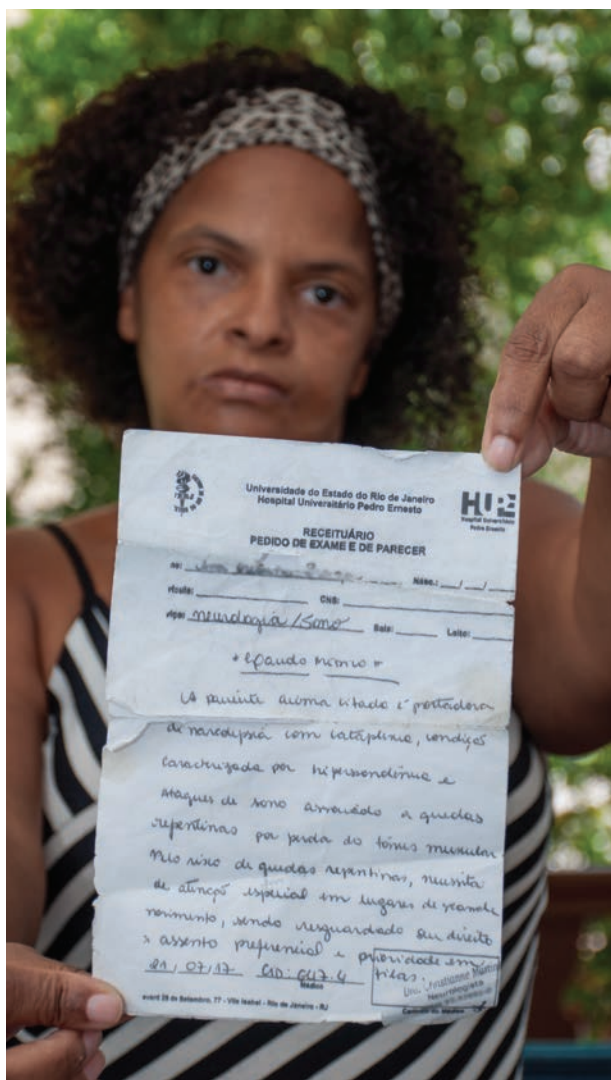 Universidade do Estado do Rio de Janeiro
Hospital Universitário Pedro Ernesto
HUPE
Hospital Universitário
Pedro Ernesto
RECEITUÁRIO
PEDIDO DE EXAME E DE PARECER
me: Nasc.: / /
CNS:
neurologia / Sono Sala: Leito:
Laudo
A paciente acima citada é portadora
de narcolepsia com cataplexia, condição
caracterizada por hipersonolência e
ataques de sono associado a quedas
repentinas por perda do tônus muscular
Pelo risco de quedas repentinas, necessita
de atenção especial em lugares de grande
movimento, sendo resguardado seu direito
a assento preferencial e prioridade em
filas.
21, 07, 17 CID: G47.4
Médico
Neurologista
Carimbo do Médico
28 de Setembro, 77 - Vila Isabel - Rio de Janeiro - RJ